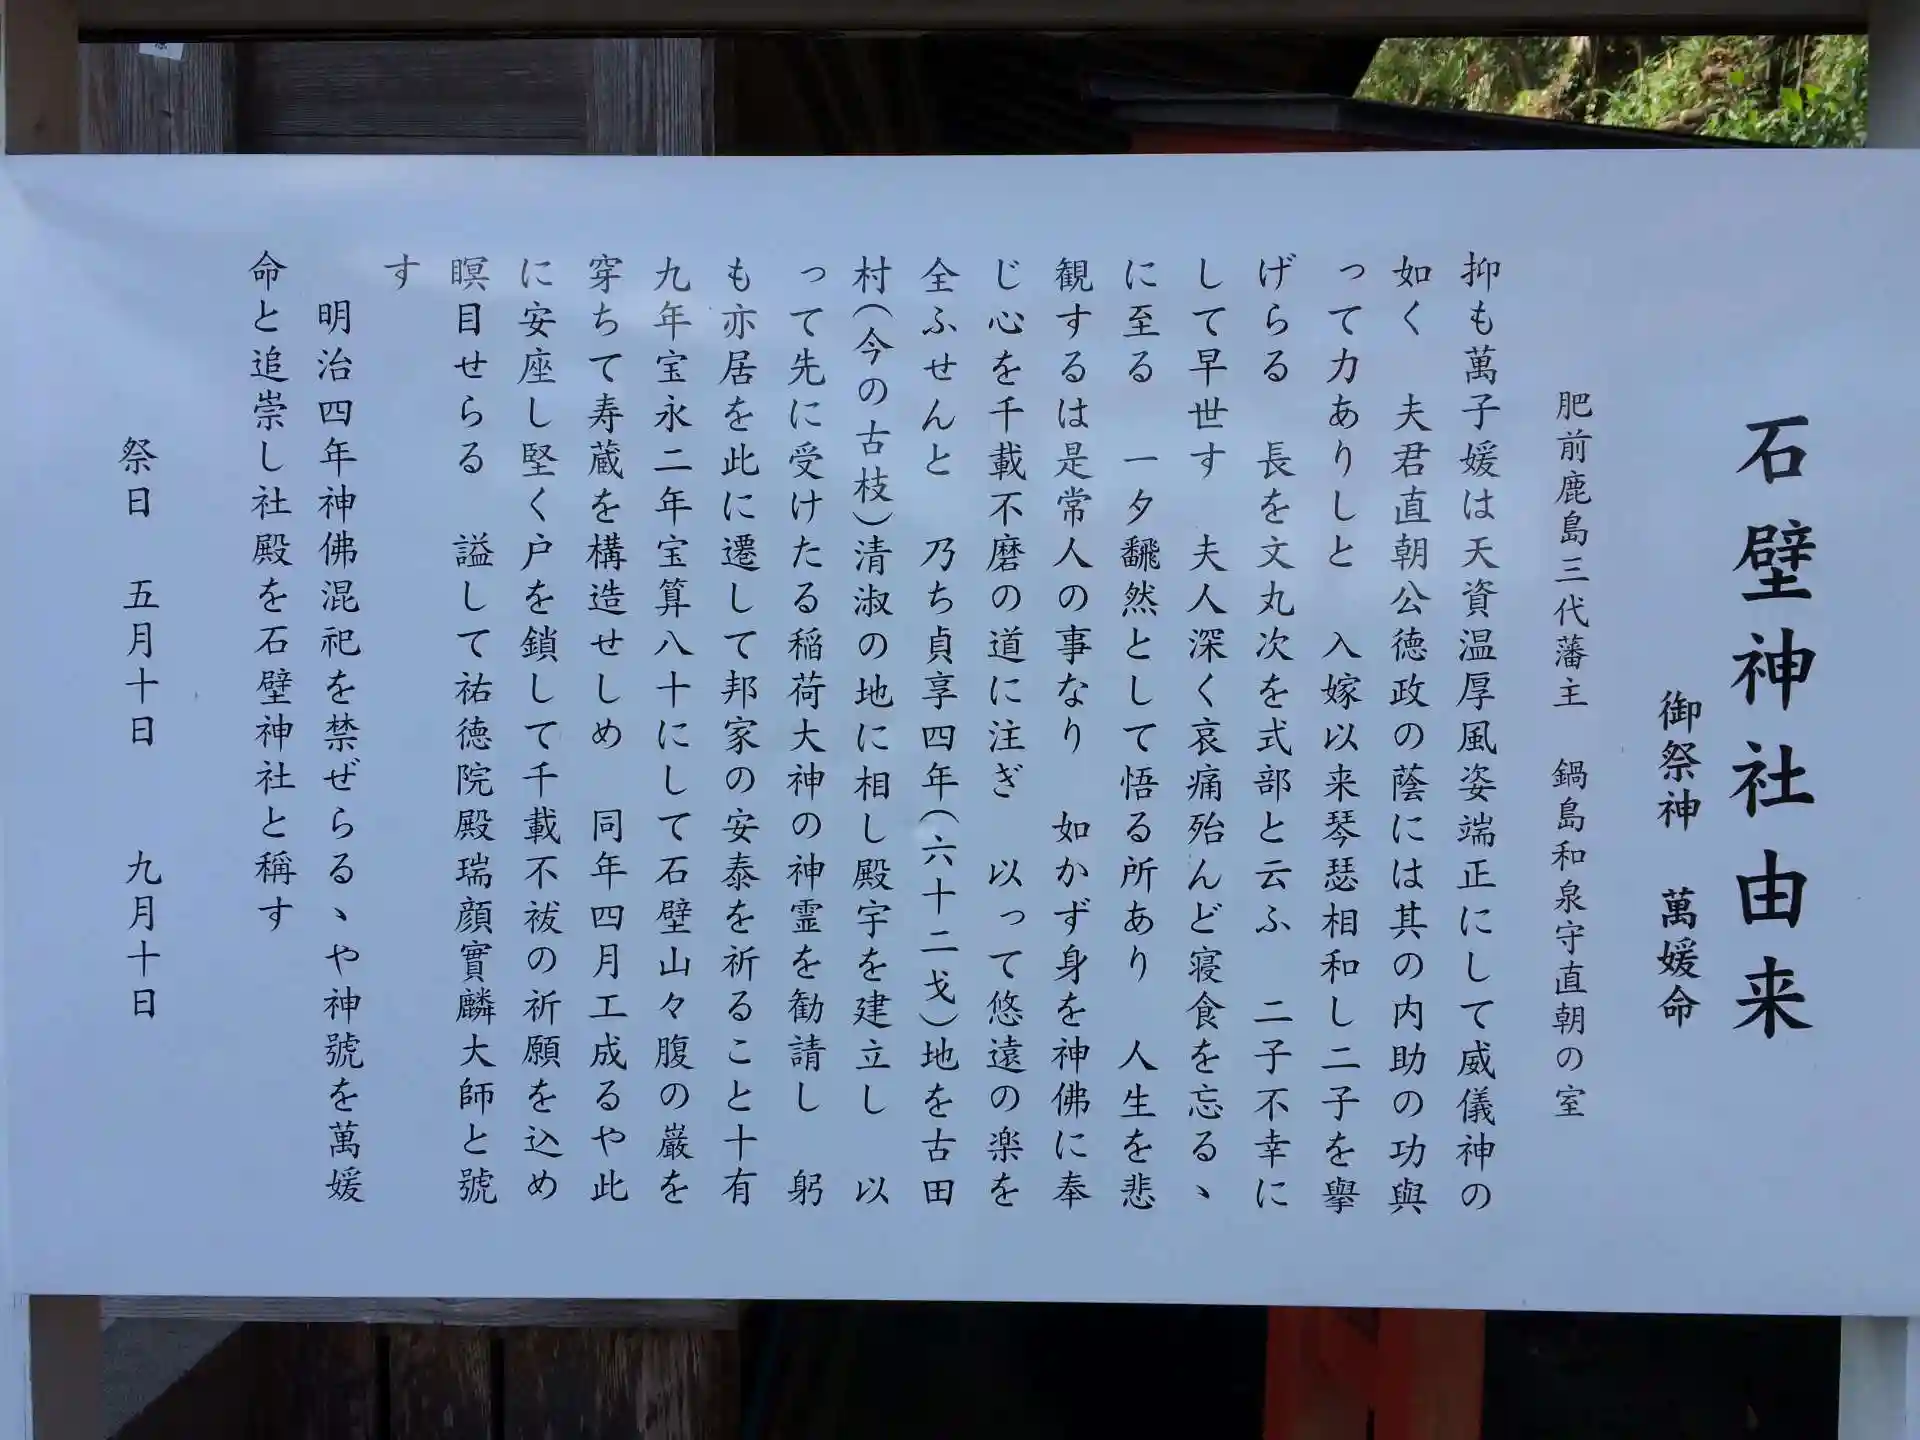 石壁神社由来
御祭神 萬媛命
肥前鹿島三代藩主 鍋島和泉守直朝の室
抑も萬子媛は天資温厚風姿端正にして威儀神の
如く 夫君直朝公徳政の蔭には其の内助の功與
って力ありしと 入嫁以来琴瑟相和し二子を擧
げらる 長を文丸次を式部と云ふ 二子不幸に
して早世す 夫人深く哀痛殆んど寝食を忘るゝ
に至る 一夕飜然として悟る所あり 人生を悲
観するは是常人の事なり 如かず身を神佛に奉
じ心を千載不磨の道に注ぎ 以って悠遠の楽を
全ふせんと 乃ち貞享四年(六十二戈)地を古田
村(今の古枝)清淑の地に相し殿宇を建立し 以
って先に受けたる稲荷大神の神霊を勧請し 躬
も亦居を此に遷して邦家の安泰を祈ること十有
九年宝永二年宝算八十にして石壁山々腹の巌を
穿ちて寿蔵を構造せしめ 同年四月工成るや此
に安座し堅く戸を鎖して千載不祓の祈願を込め
瞑目せらる 謚して祐徳院殿瑞顔實麟大師と號
す
明治四年神佛混祀を禁ぜらるゝや神號を萬媛
命と追崇し社殿を石壁神社と稱す
祭日 五月十日 九月十日